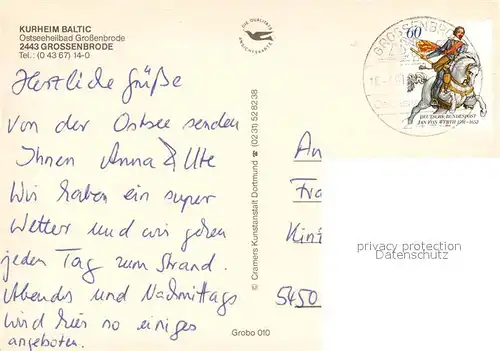 KURHEIM BALTIC
Ostseeheilbad Großenbrode
2443 GROSSENBRODE
Tel.: (0 43 67) 14-0
Herzliche Grüße
von der Ostsee senden
Ihnen Anna & Ute
Wir haben ein super
Wetter und wir gehen
jeden Tag zum Strand.
Abends und Nachmittags
wird hier so einiges
angeboten.
DIE QUALITÄTS
ANSICHTSKARTE
© Cramers Kunstanstalt Dortmund ☎ (0231) 528238
Grobo 010
GROSSENBRO
60
DEUTSCHE BUNDESPOST
JAN VON WERTH 1591-1652
An
Fra
5450
privacy protection
Datenschutz